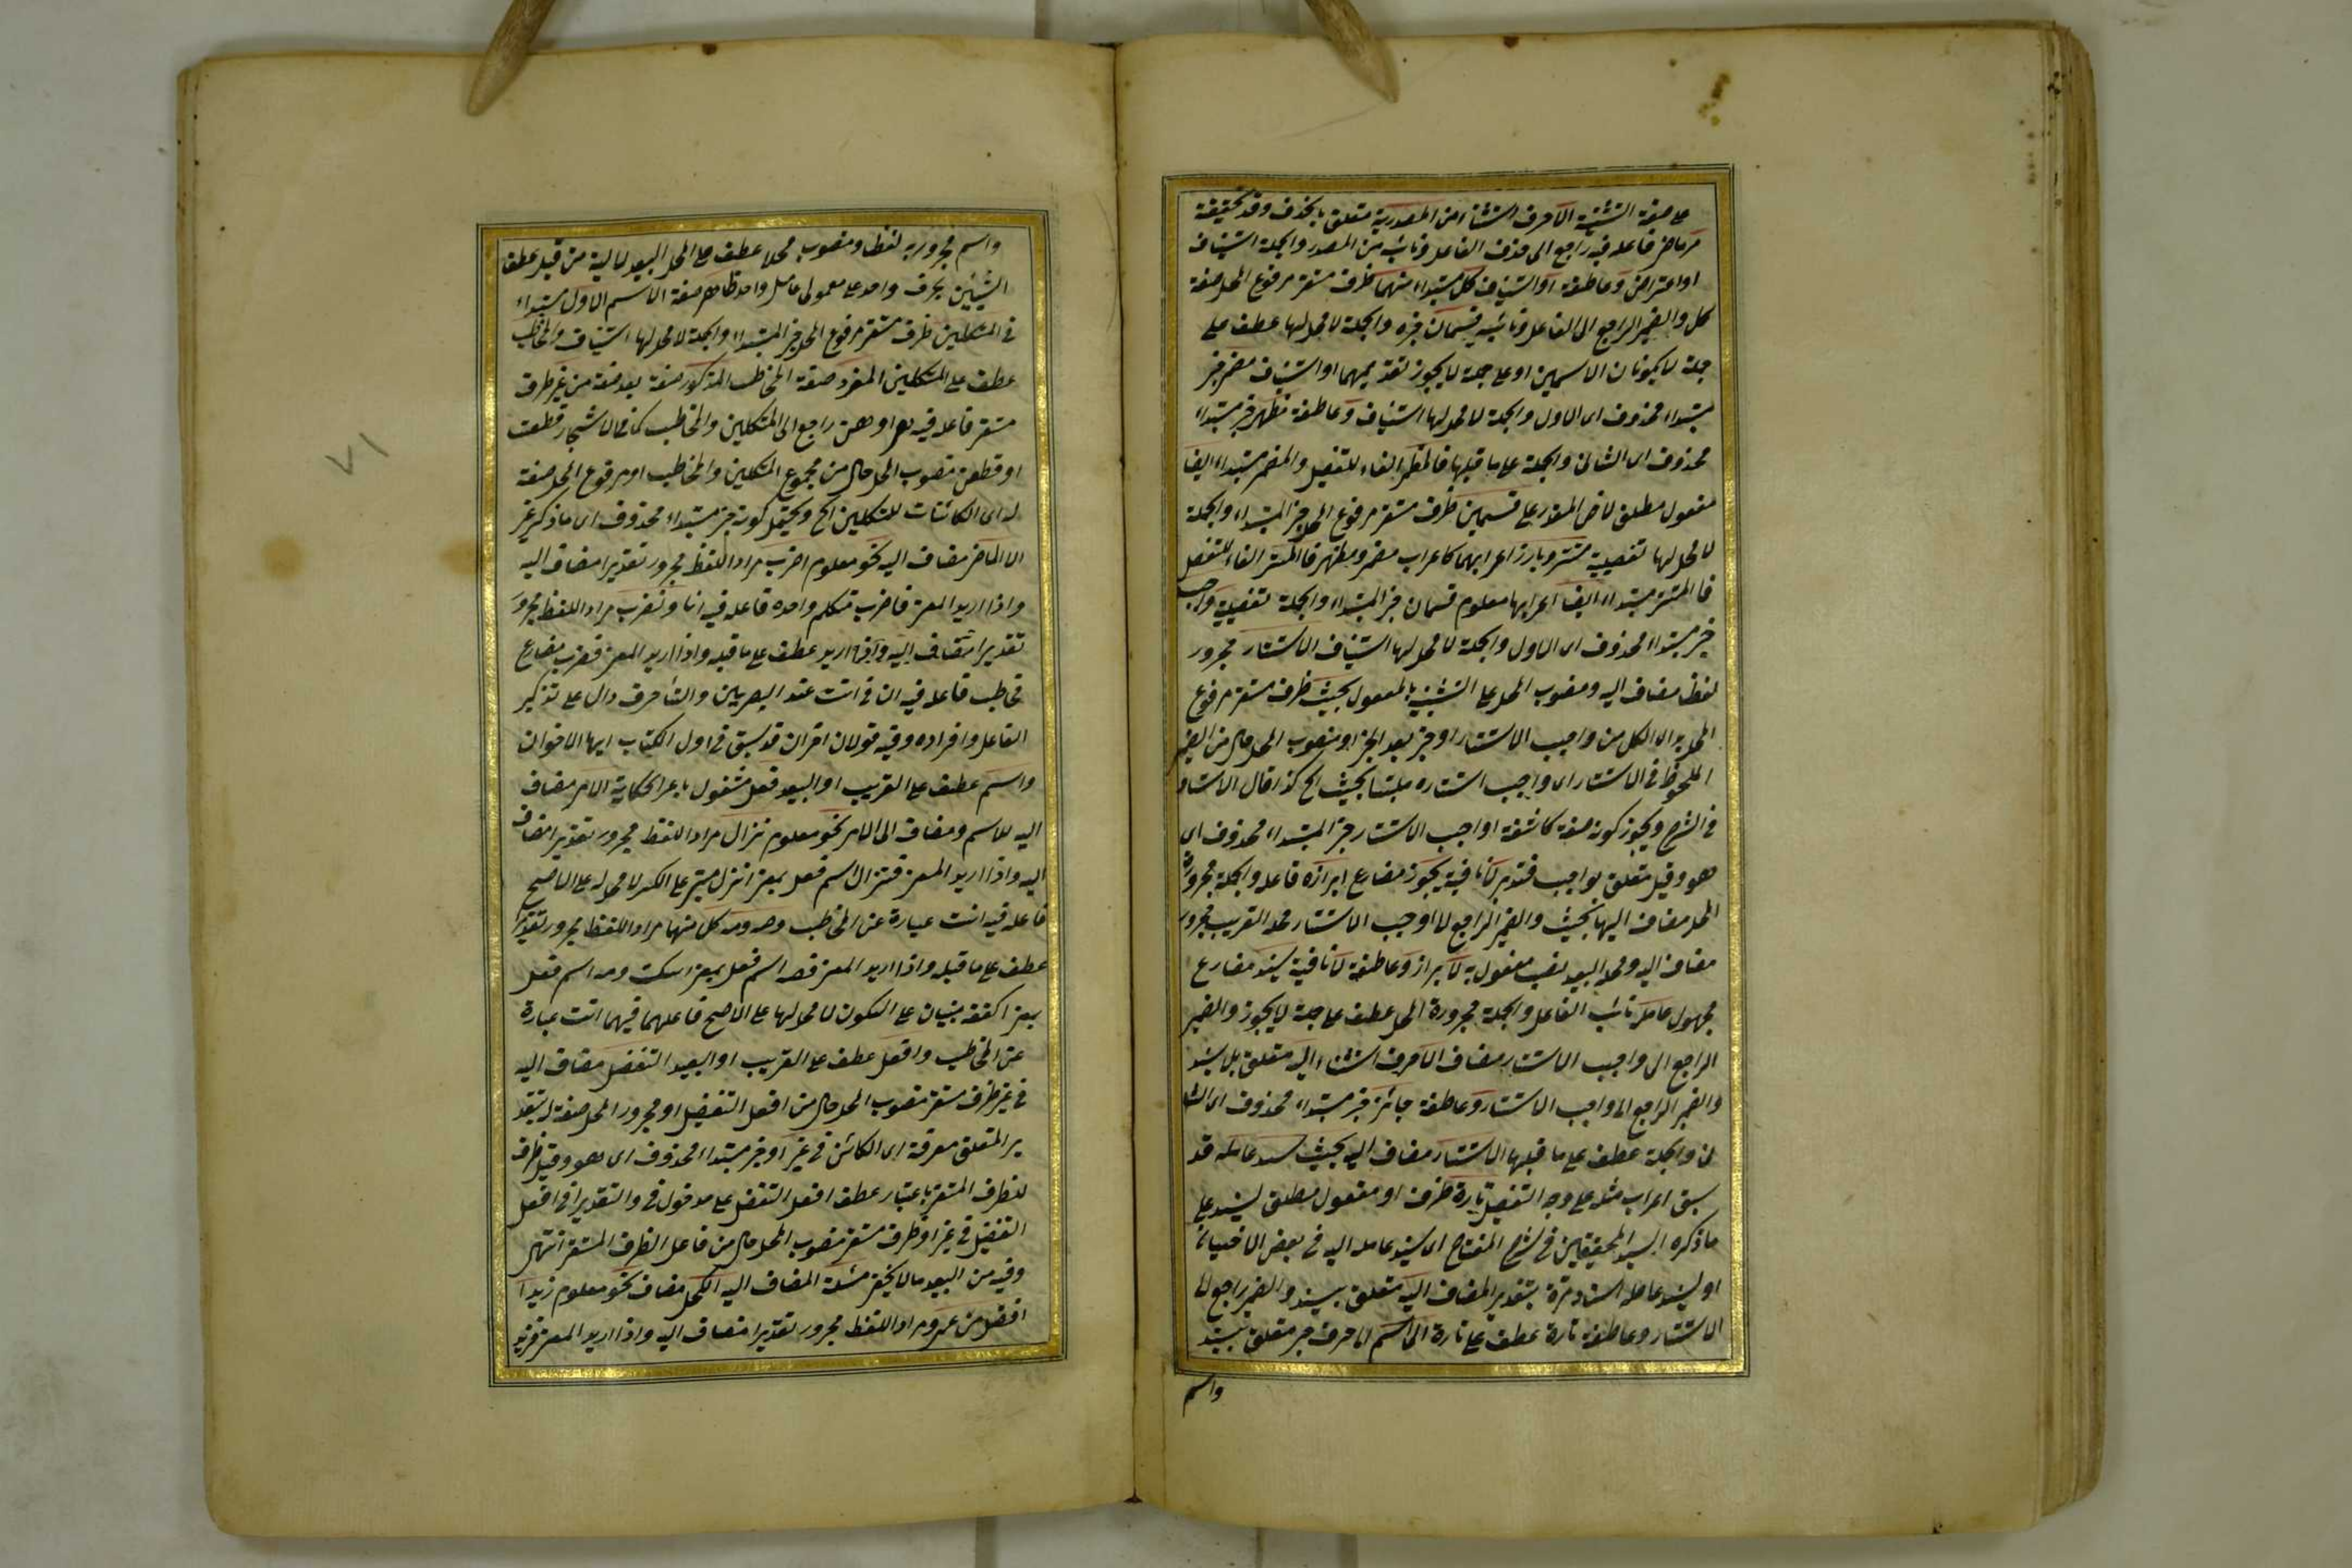 على صفة التثنية الا حرف استثناء من المصدرية متعلق بالحذف وقد تحقيقية
مر ماض فاعله فيه راجع الى حذف الفاعل ونائب من المصدر والجملة استيناف
او اعتراض وعاطفة او استيناف كل مبتداء منهما ظرف مستقر مرفوع المحل صفة
كل والضمير الراجع الى الفاعل ونائبه قسمان خبره والجملة لا محل لها عطف على
جملة لا يكونان الاسمين او على جملة لا يجوز تقديمهما او استيناف مضمر خبر
مبتداء محذوف اى الاول والجملة لا محل لها استيناف وعاطفة مظهر خبر مبتداء
محذوف اى الثانى والجملة على ما قبلها فالمضمر الفاء للتفصيل والمضمر مبتداء ايضا
مفعول مطلق لاض المقدر على قسمين ظرف مستقر مرفوع المحل خبر المبتداء والجملة
لا محل لها تفصيلية مستتر وبارز اعرابهما كاعراب مضمر ومظهر فالمستتر الفاء للتفصيل
فالمستتر مبتداء ايضا اعرابها معلوم قسمان خبر المبتداء والجملة تفصيلية واجب
خبر مبتداء محذوف اى الاول والجملة لا محل لها استيناف الاستتار مجرور
لفظا مضاف اليه ومنصوب المحل على التشبيه بالمفعول بحيث ظرف مستقر مرفوع
المحل الكل من واجب الاستتار او خبر بعد الخبر او منصوب المحل حال من الضمير
الملحوظ فى الاستتار اى واجب استتاره ملتبسا بحيث الخ كذا قال الاستاد
فى الشرح ويجوز كونه صفة كاشفة او واجب الاستتار خبر المبتداء محذوف اى
هو وقيل متعلق بواجب فتدبر لا نافية يجوز مضارع ابرازه فاعله والجملة مجرورة
المحل مضاف اليها بحيث والضمير الراجع لا واجب الاستتار محله القريب مجرور
مضاف اليه ومحله البعيد نصب مفعول به لا براز وعاطفة لا نافية يسند مضارع
مجهول عامله نائب الفاعل والجملة مجرورة المحل عطف على جملة لا يجوز والضمير
الراجع الى واجب الاستتار مضاف الا حرف استثناء اليه متعلق بلا يسند
والضمير الراجع الى واجب الاستتار وعاطفة جائز خبر مبتداء محذوف اى الثا
نى والجملة عطف على ما قبلها الاستتار مضاف اليه بحيث يسند عامله قد
سبق اعراب مثله على وجه التفصيل تارة ظرف او مفعول مطلق ليسند على
ما ذكره السيد المحققين فى شرح المفتاح اى يسند عامله اليه فى بعض الاحيان
او ليسند عامله اسناد مرة بتقدير المضاف اليه متعلق بيسند والضمير راجع لا
الاستتار وعاطفة تارة عطف على تارة الى اسم الى حرف جر متعلق بيسند
واسم
واسم مجرور به لفظا ومنصوب محلا عطف على المحل البعيد لاليه من قبيل عطف
الشيئين بحرف واحد على معمولى عامل واحد ظاهر صفة الاسم الاول مبتداء
فى المتكلمين ظرف مستقر مرفوع المحل خبر المبتداء والجملة لا محل لها استيناف والمخاطب
عطف على المتكلمين المفرد صفة المخاطب المذكور صفة بعد صفة من غير ظرف
مستقر فاعله فيه هو او هن راجع الى المتكلمين والمخاطب كما فى الاشجار قطعت
او قطعن منصوب المحل حال من مجموع المتكلمين والمخاطب او مرفوع المحل صفة
له اى الكائنات للمتكلمين الخ ويحتمل كونه خبر مبتداء محذوف اى ما ذكر غير
الماضى مضاف اليه نحو معلوم اضرب مراد اللفظ مجرور تقديرا مضاف اليه
واذا اريد المعنى فاضرب متكلم وحده فاعله فيه انا ونضرب مراد اللفظ مجرور
تقديرا مضاف اليه واذا اريد عطف على ما قبله واذا اريد المعنى فتضرب مضارع
مخاطب فاعله فيه ان فى انت عند البصريين والتاء حرف دال على تذكير
الفاعل وافراده وفيه قولان اخران قد سبق فى اول الكتاب ايها الاخوان
واسم عطف على القريب او البعيد فعل مشغول باعراب الحكاية الامر مضاف
اليه للاسم ومضاف الى الامر نحو معلوم نزال مراد اللفظ مجرور تقديرا مضاف
اليه واذا اريد المعنى فنزال اسم فعل بمعنى انزل مبنى على الكسر لا محل له على الاصح
فاعله فيه انت عبارة عن المخاطب وصه ومه كل منهما مراد اللفظ مجرور تقديرا
عطف على ما قبله واذا اريد المعنى فصه اسم فعل بمعنى اسكت ومه اسم فعل
بمعنى اكفف مبنيان على السكون لا محل لها على الاصح فاعلهما فيهما انت عبارة
عن المخاطب وافعل عطف على القريب او البعيد التفضيل مضاف اليه
فى غير ظرف مستقر منصوب المحل حال من افعل التفضيل او مجرور المحل صفة له بتقد
ير المتعلق معرفة اى الكائن فى غير او خبر مبتداء محذوف اى هو وقيل ظرف
للظرف المستقر باعتبار عطف افعل التفضيل على مدخول فى والتقدير فى افعل
التفضيل فى غير او ظرف مستقر منصوب المحل حال من فاعل الظرف المستقر انتهى
وفيه من البعيد ما لا يخفى مسئلة المضاف اليه الكحل مضاف نحو معلوم زيد ا
افضل من عمرو مراد اللفظ مجرور تقديرا مضاف اليه واذا اريد المعنى فزيد
٧١